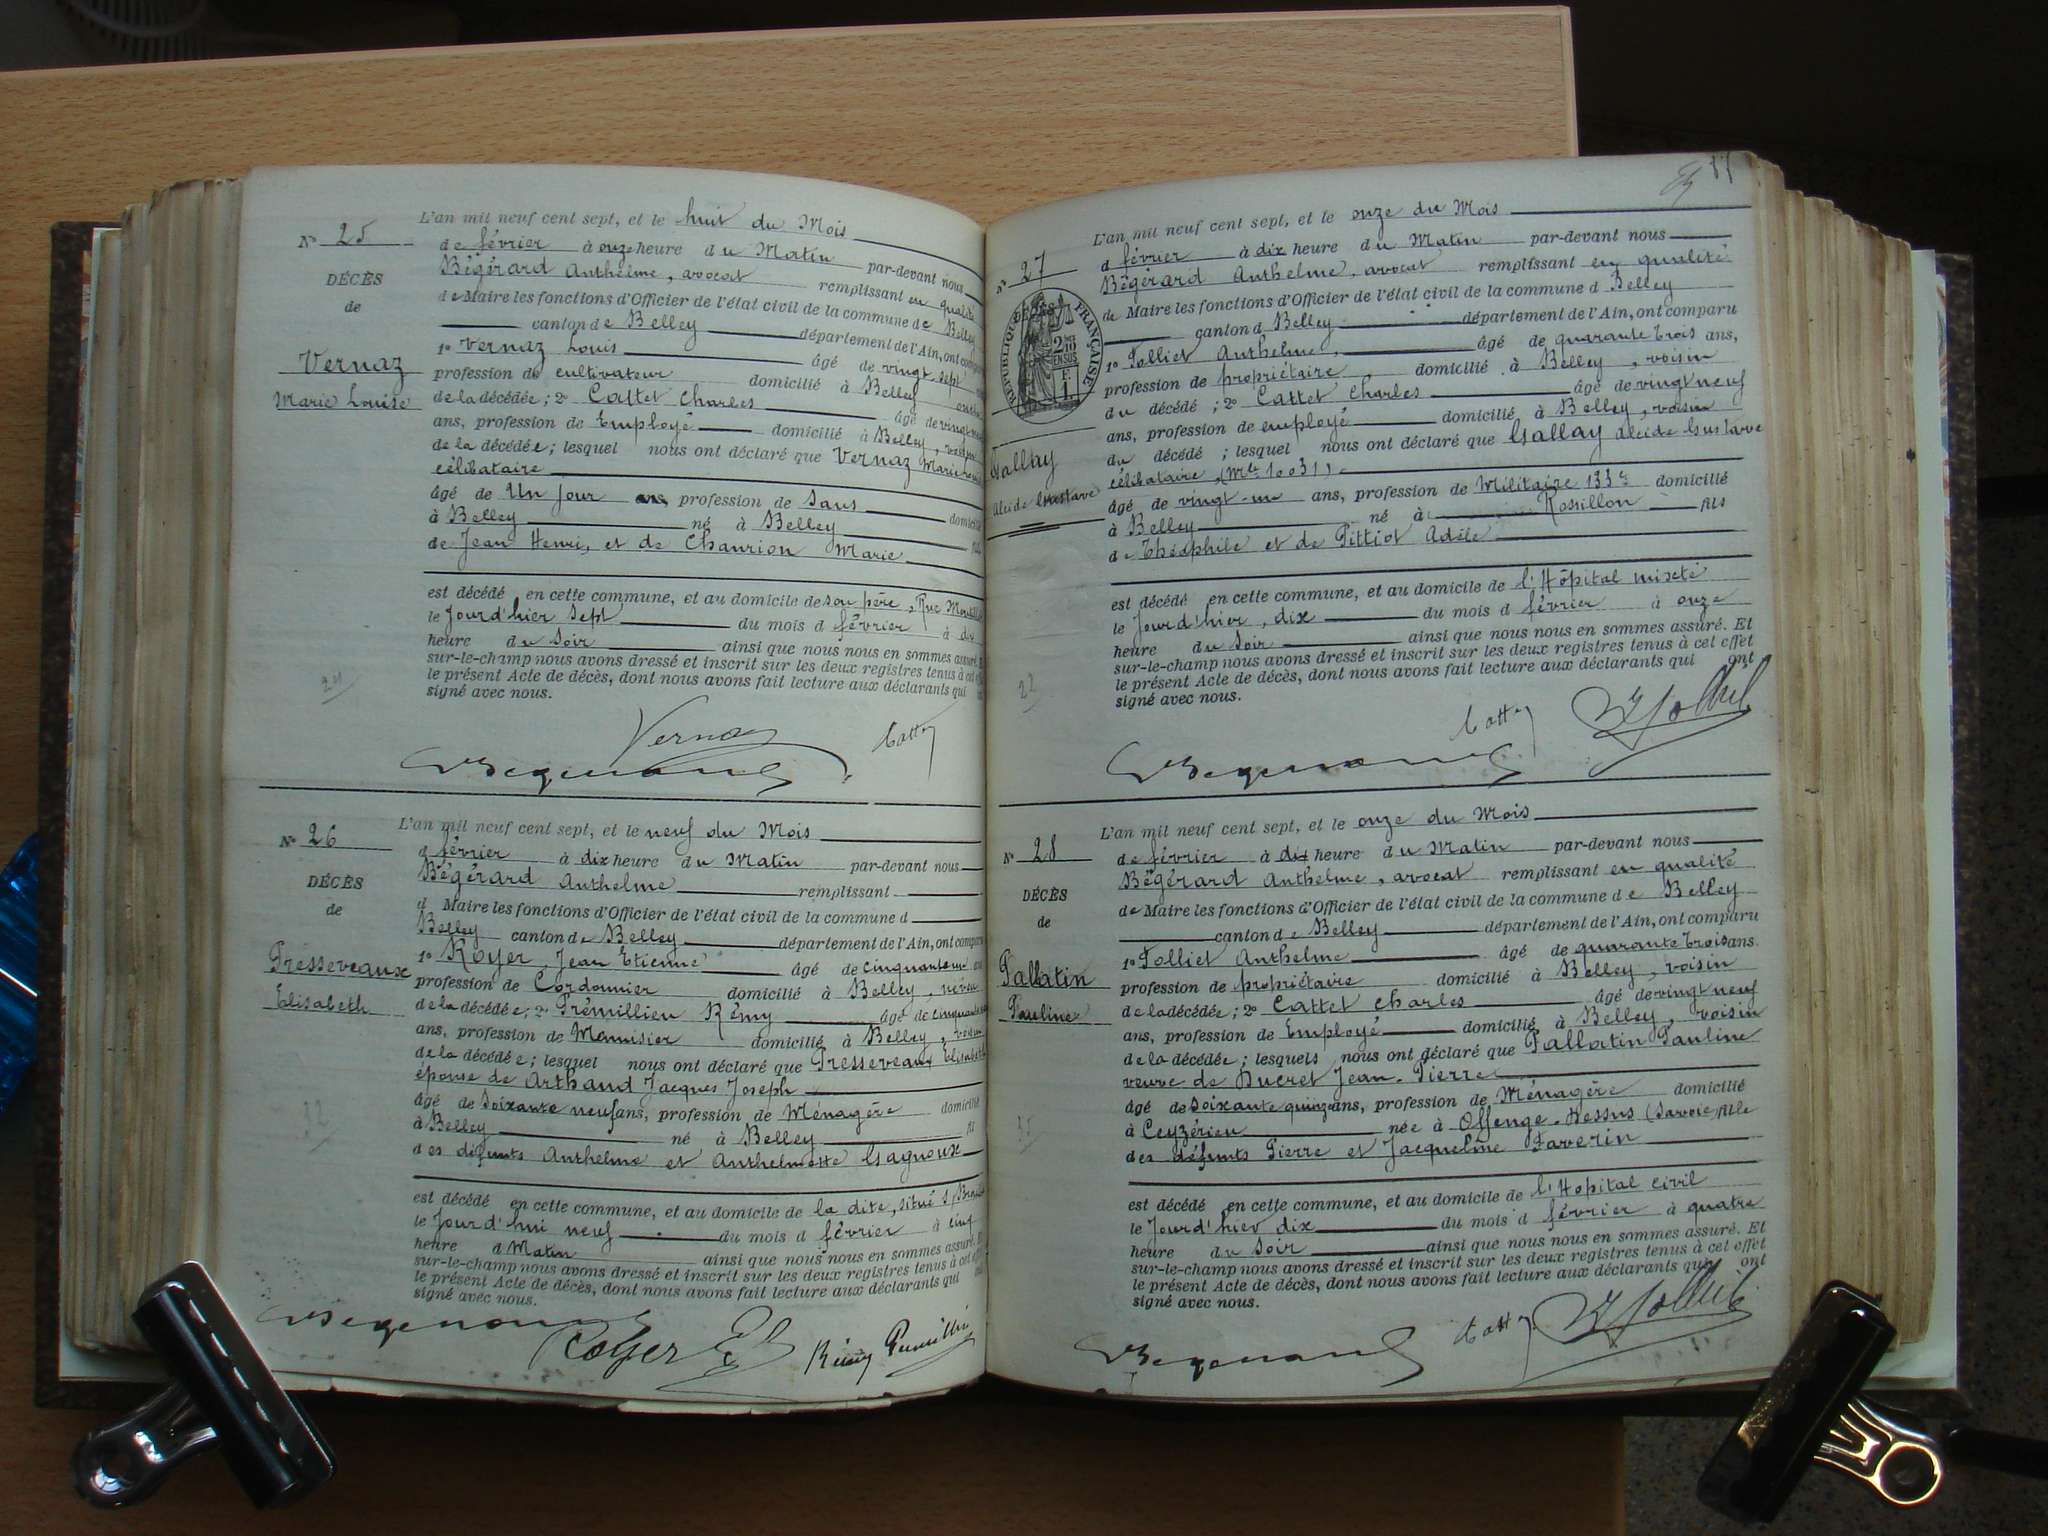 N° 25
DÉCÈS
de
Vernaz
Marie Louise
L'an mil neuf cent sept, et le huit du Mois
de février à onze heure du Matin par-devant nous
Bégérard Anthelme, avocat remplissant en qualité
de Maire les fonctions d'Officier de l'état civil de la commune de Belley
canton de Belley département de l'Ain, ont comparu
1° Vernaz Louis âgé de vingt-sept
profession de cultivateur domicilié à Belley
de la décédée; 2° Cattet Charles âgé de vingt
ans, profession de Employé domicilié à Belley, voisin
de la décédée; lesquel nous ont déclaré que Vernaz Marie
célibataire
âgé de Un jour ans, profession de Sans domicilié
à Belley né à Belley
de Jean Henri, et de Chaurion Marie
est décédé en cette commune, et au domicile de son père, Rue
le Jourd'hier sept du mois d février à dix
heure du Soir ainsi que nous nous en sommes assuré. Et
sur-le-champ nous avons dressé et inscrit sur les deux registres tenus à cet effet
le présent Acte de décès, dont nous avons fait lecture aux déclarants qui
signé avec nous.
Vernaz
N° 26
DÉCÈS
de
Presseveaux
Elisabeth
L'an mil neuf cent sept, et le neuf du Mois
d février à dix heure du Matin par-devant nous
Bégérard Anthelme remplissant
d Maire les fonctions d'Officier de l'état civil de la commune d
Belley canton de Belley département de l'Ain, ont comparu
1° Royer Jean Etienne âgé de cinquante
profession de Cordonnier domicilié à Belley, neveu
de la décédée; 2° Prémillieu Rémy âgé de cinquante
ans, profession de Menuisier domicilié à Belley, voisin
de la décédée; lesquel nous ont déclaré que Presseveaux Elisabeth
épouse de Arthaud Jacques Joseph
âgé de soixante neuf ans, profession de Ménagère domicilié
à Belley né à Belley fil
des défunts Anthelme et Anthelmette Gagnoux
est décédé en cette commune, et au domicile de la dite, situé
le Jourd'hui neuf du mois d février à cinq
heure d Matin ainsi que nous nous en sommes assuré. Et
sur-le-champ nous avons dressé et inscrit sur les deux registres tenus à cet effet
le présent Acte de décès, dont nous avons fait lecture aux déclarants qui
signé avec nous.
Royer
N° 27
RÉPUBLIQUE FRANÇAISE
Gallay
Alcide Gustave
L'an mil neuf cent sept, et le onze du Mois
d février à dix heure du Matin par-devant nous
Bégérard Anthelme, avocat remplissant en qualité
de Maire les fonctions d'Officier de l'état civil de la commune d Belley
canton d Belley département de l'Ain, ont comparu
1° Tolliet Anthelme, âgé de quarante trois ans,
profession de propriétaire, domicilié à Belley, voisin
du décédé; 2° Cattet Charles âgé de vingt neuf
ans, profession de employé domicilié à Belley, voisin
du décédé; lesquel nous ont déclaré que Gallay Alcide Gustave
célibataire, (Mle 10031)
âgé de vingt-un ans, profession de Militaire 133e domicilié
à Belley né à Rossillon fils
de Théophile et de Pittiot Adèle
est décédé en cette commune, et au domicile de l'Hôpital mixte
le Jourd'hier, dix du mois d février à onze
heure du Soir ainsi que nous nous en sommes assuré. Et
sur-le-champ nous avons dressé et inscrit sur les deux registres tenus à cet effet
le présent Acte de décès, dont nous avons fait lecture aux déclarants qui ont
signé avec nous.
N° 28
DÉCÈS
de
Pallatin
Pauline
L'an mil neuf cent sept, et le onze du Mois
de février à dix heure du Matin par-devant nous
Bégérard Anthelme, avocat remplissant en qualité
de Maire les fonctions d'Officier de l'état civil de la commune de Belley
canton de Belley département de l'Ain, ont comparu
1° Tolliet Anthelme âgé de quarante trois ans
profession de propriétaire domicilié à Belley, voisin
de la décédée; 2° Cattet Charles âgé de vingt neuf
ans, profession de Employé domicilié à Belley, voisin
de la décédée; lesquels nous ont déclaré que Pallatin Pauline
veuve de Ducret Jean-Pierre
âgé de soixante quinze ans, profession de Ménagère domicilié
à Ceyzérieu née à Ossenge-Dessus (Savoie) fille
des défunts Pierre et Jacqueline Paverin
est décédé en cette commune, et au domicile de l'Hopital civil
le Jourd'hier dix du mois d février à quatre
heure du Soir ainsi que nous nous en sommes assuré. Et
sur-le-champ nous avons dressé et inscrit sur les deux registres tenus à cet effet
le présent Acte de décès, dont nous avons fait lecture aux déclarants qui ont
signé avec nous.